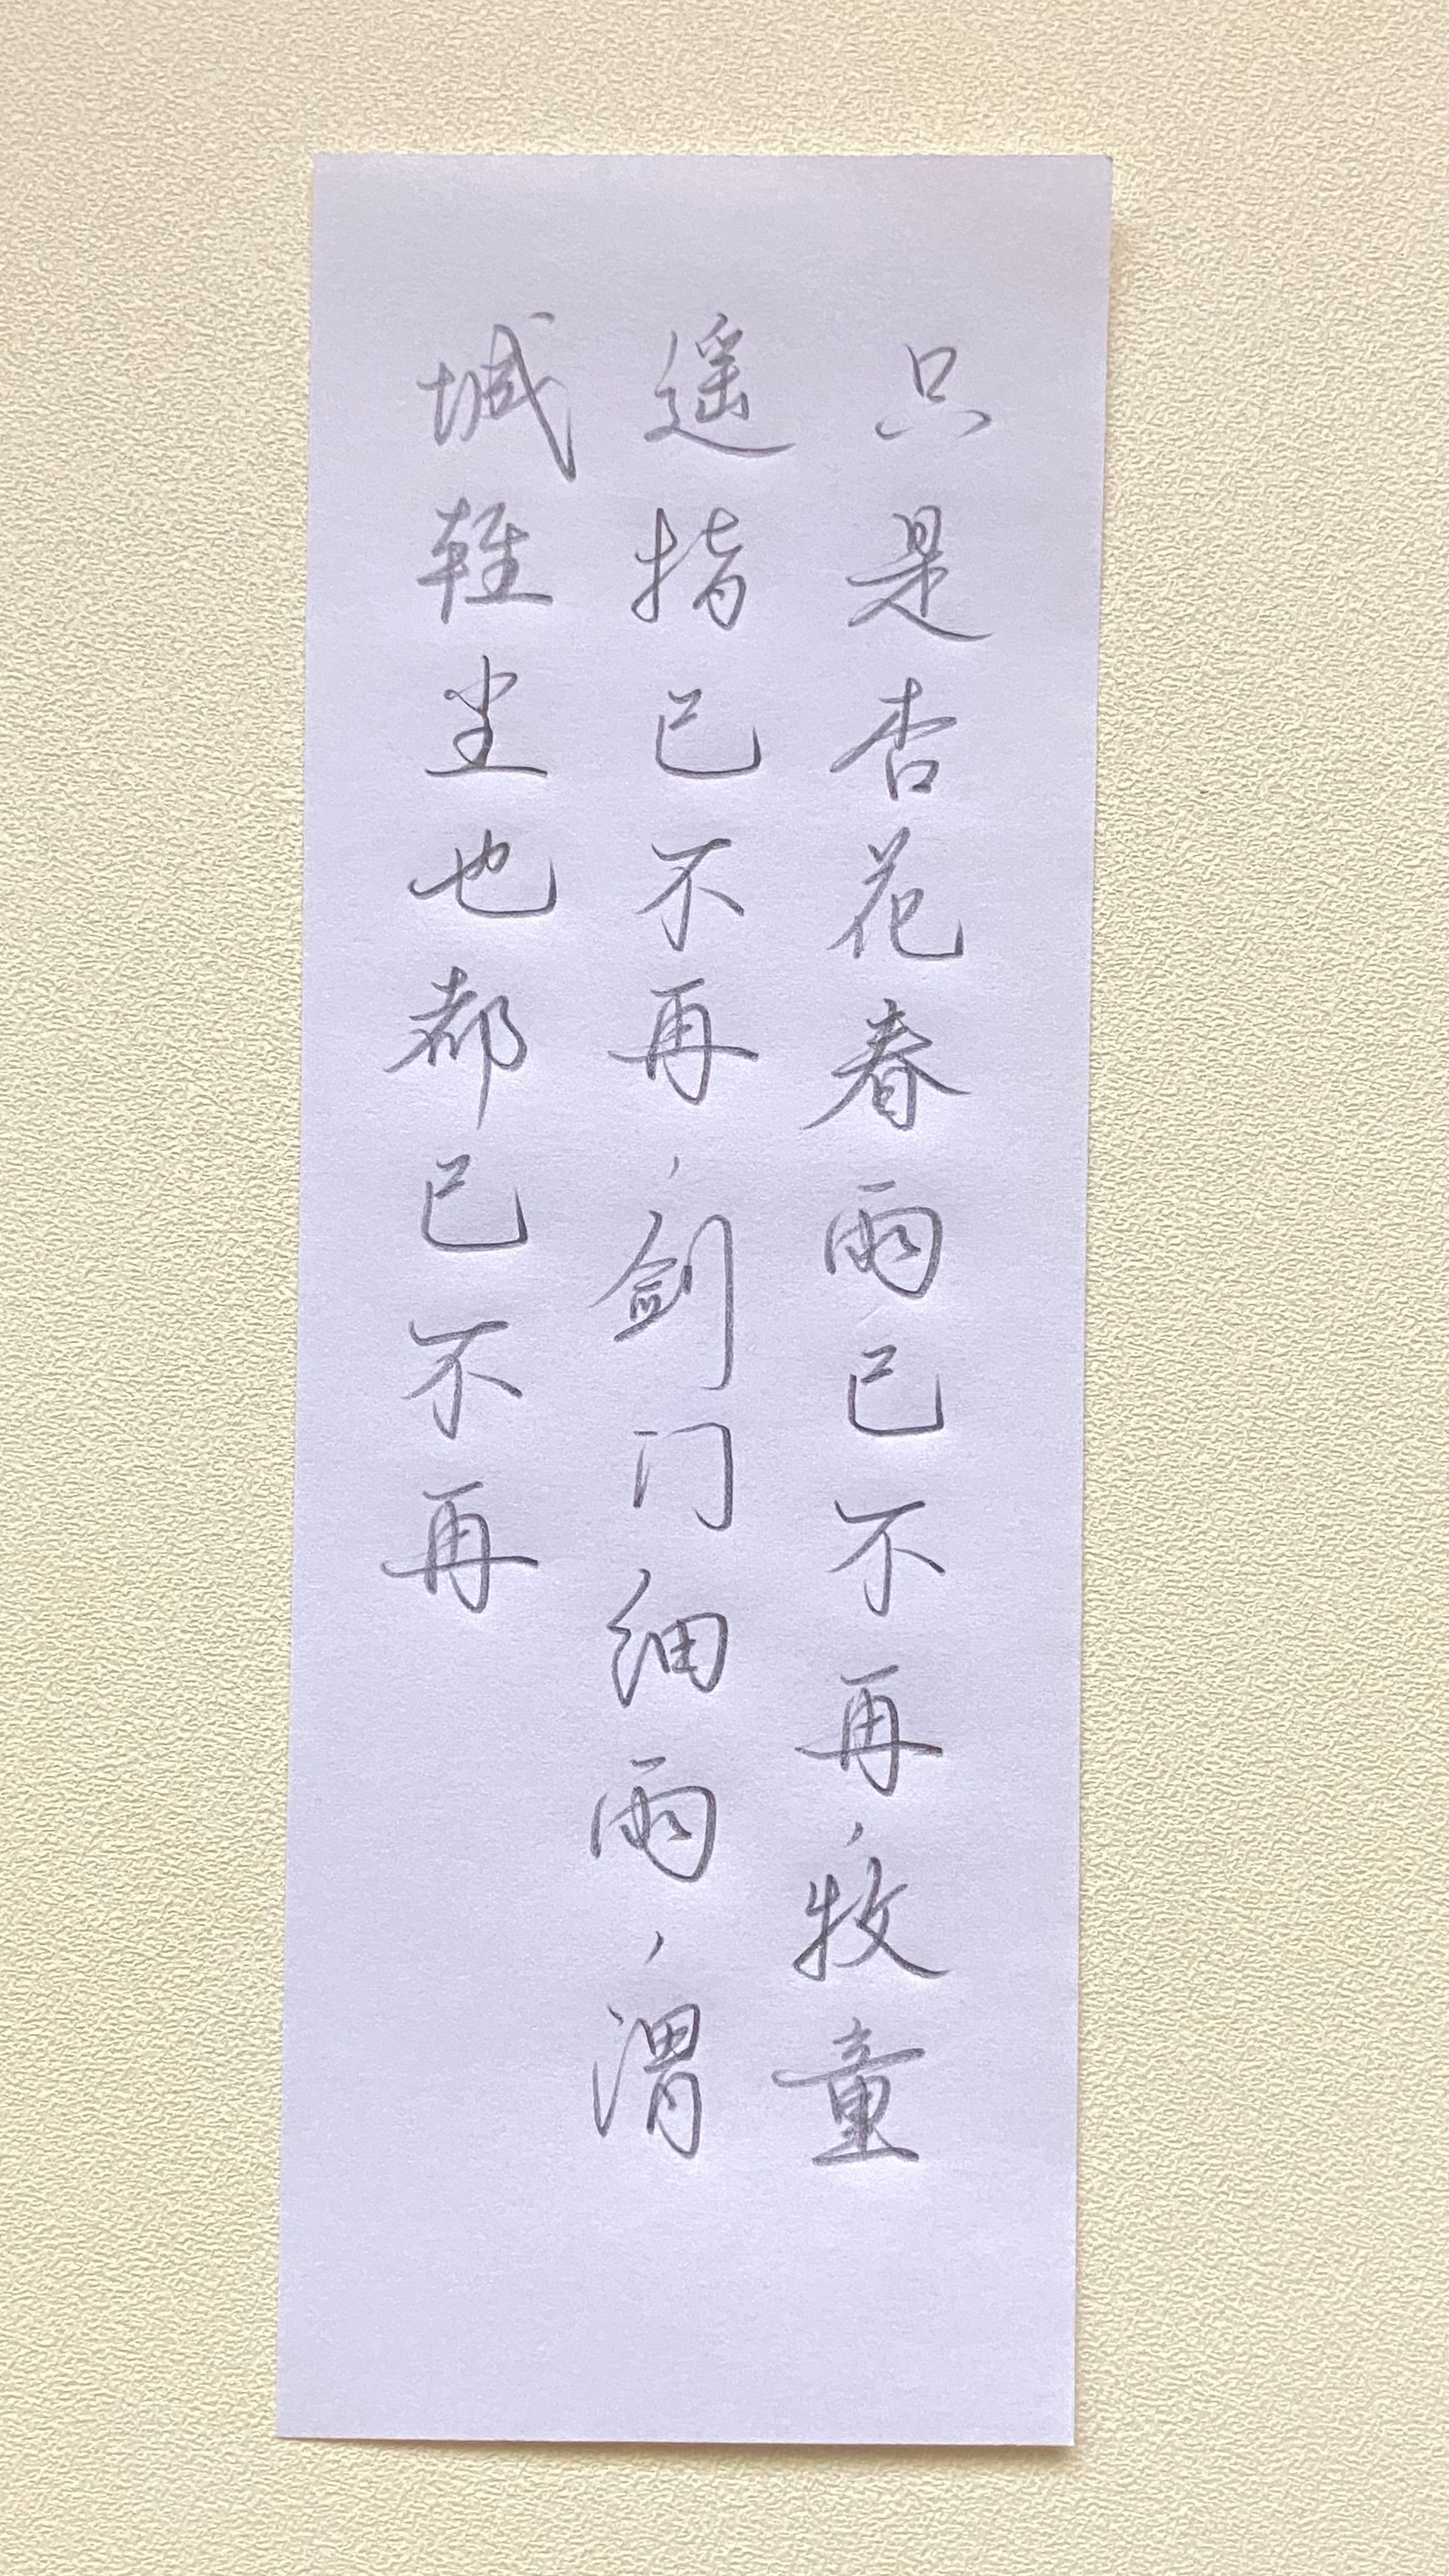 只是杏花春雨已不再，牧童
遥指已不再，剑门细雨，渭
城轻尘也都已不再